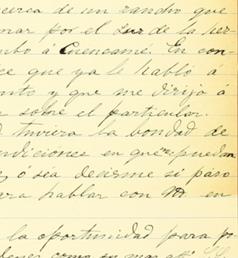 cerca de un rancho que
mar por el Sur de la her
mbo á Cuencamé. En con
ce que ya le habló á
nto y que me dirija á
sobre el particular.
tuviera la bondad de
ndiciones en que puedan
y ó sea decirme si paso
ara hablar con M en
la oportunidad para po